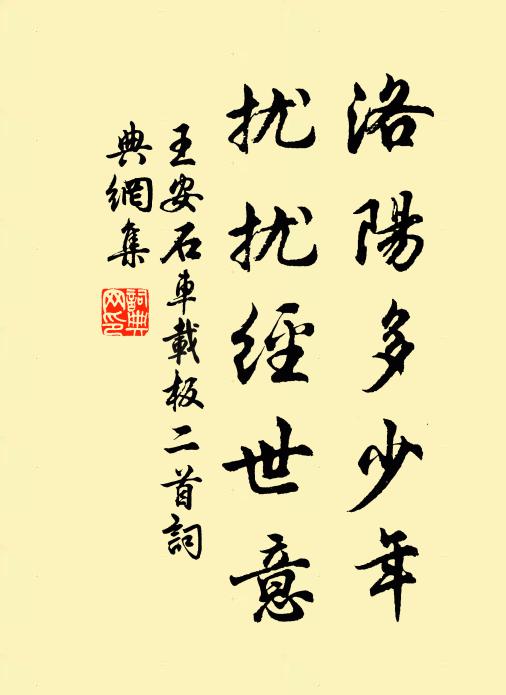 洛陽多少年
扰扰經世意
王安石車載板二首詞
典網集
詞典网印